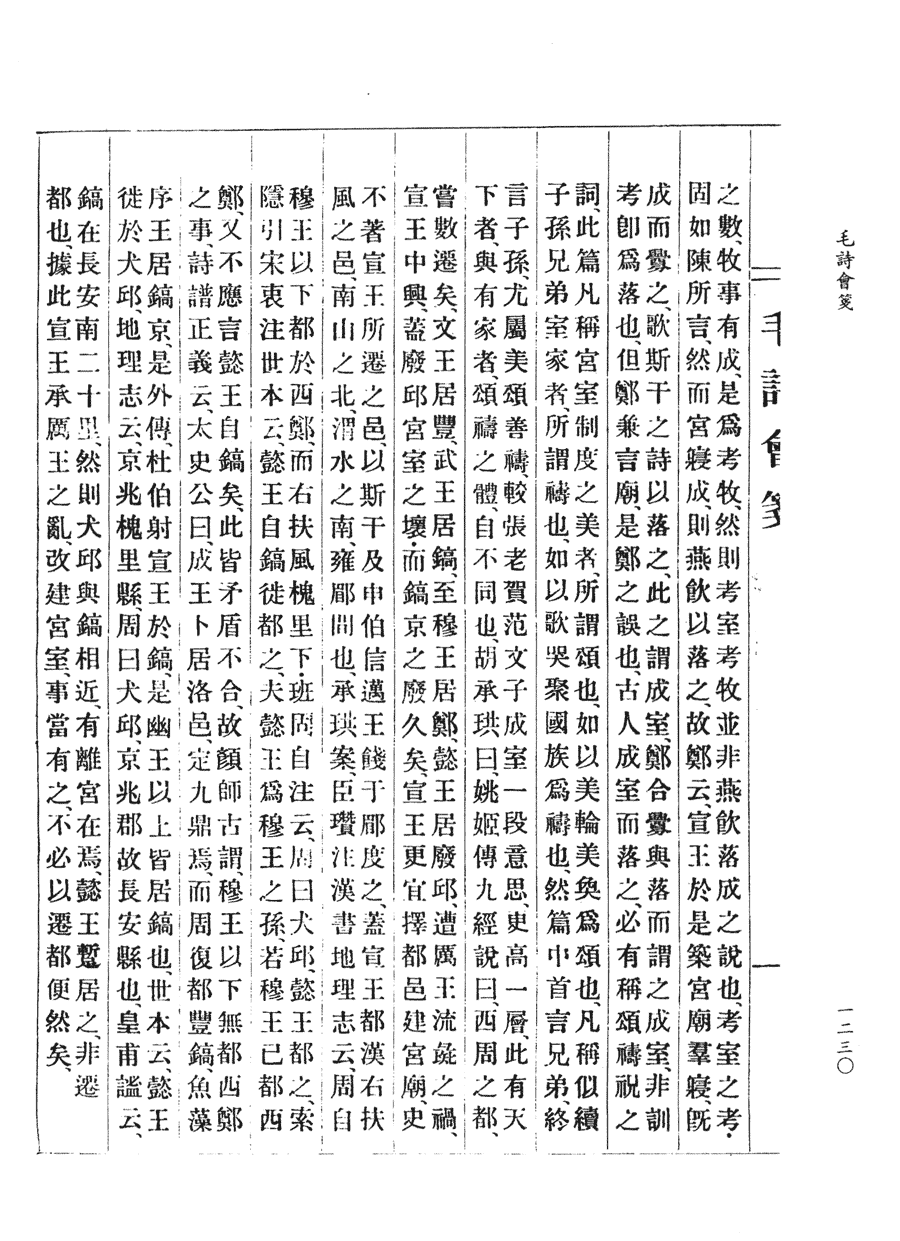 毛詩會箋
一二三〇
毛詩會箋
之數、牧事有成、是爲考牧、然則考室考牧並非燕飮落成之說也、考室之考・
固如陳所言、然而宮寢成、則燕飮以落之、故鄭云、宣王於是築宮廟羣寢、旣
成而釁之、歌斯干之詩以落之、此之謂成室、鄭合釁與落而謂之成室、非訓
考卽爲落也、但鄭兼言廟、是鄭之誤也、古人成室而落之、必有稱頌禱祝之
詞、此篇凡稱宮室制度之美者、所謂頌也、如以美輪美奐爲頌也、凡稱似續
子孫兄弟室家者、所謂禱也、如以歌哭聚國族爲禱也、然篇中首言兄弟、終
言子孫、尤屬美頌善禱、較張老賀范文子成室一段意思、更高一層、此有天
下者、與有家者、頌禱之體、自不同也、胡承珙曰、姚姬傳九經說曰、西周之都、
嘗數遷矣、文王居豐、武王居鎬、至穆王居鄭、懿王居廢邱、遭厲王流彘之禍、
宣王中興、蓋廢邱宮室之壞・而鎬京之廢久矣、宣王更宜擇都邑建宮廟、史
不著宣王所遷之邑、以斯干及申伯信邁王餞于郿度之、蓋宣王都漢右扶
風之邑、南山之北、渭水之南、雍郿間也、承珙案、臣瓚注漢書地理志云、周自
穆王以下都於西鄭、而右扶風槐里下・班固自注云、周曰犬邱、懿王都之、索
隱引宋衷注世本云、懿王自鎬徙都之、夫懿王爲穆王之孫、若穆王已都西
鄭、又不應言懿王自鎬矣、此皆矛盾不合、故顏師古謂、穆王以下無都西鄭
之事、詩譜正義云、太史公曰、成王卜居洛邑、定九鼎焉、而周復都豐鎬、魚藻
序王居鎬京、是外傳、杜伯射宣王於鎬、是幽王以上皆居鎬也、世本云、懿王
徙於犬邱、地理志云、京兆槐里縣、周曰犬邱、京兆郡故長安縣也、皇甫謐云、
鎬在長安南二十里、然則犬邱與鎬相近、有離宮在焉、懿王蹔居之、非遷
都也、據此宣王承厲王之亂、改建宮室、事當有之、不必以遷都便然矣、